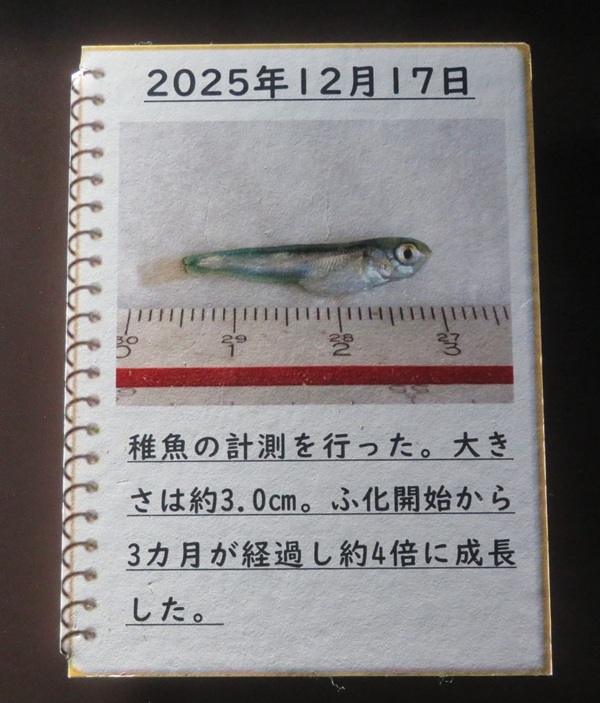 2025年12月17日
30 29 28 27
0 1 2 3
稚魚の計測を行った。大き
さは約3.0cm。ふ化開始から
3カ月が経過し約4倍に成長
した。